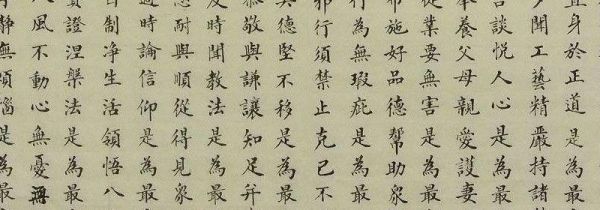 直身於正道是為最
多聞工藝精嚴持諸
言談悅人心是為最
奉養父母親愛護妻
從業要無害是為最
布施好品德幫助眾
行為無瑕疵是為最
邪行須禁止克己不
美德堅不移是為最
恭敬與謙讓知足并
及時聞教法是為最
忍耐與順從得見眾
適時論信仰是為最
自制净生活領悟八
實證涅槃法是為最
八風不動心無憂無
靜無煩惱是為最